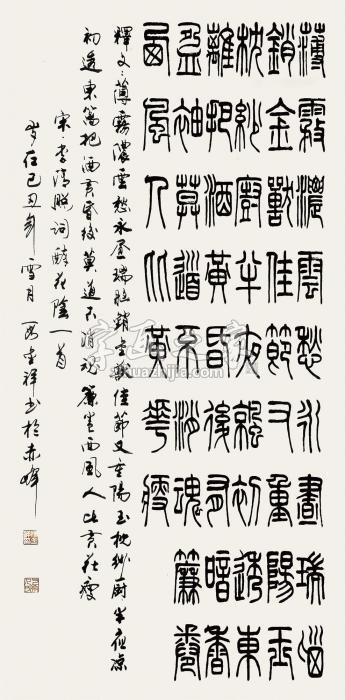 薄霧濃雲愁永晝瑞腦
銷金獸佳節又重陽玉
枕紗廚半夜涼初透東
籬把酒黃昏後有暗香
盈袖莫道不消魂簾卷
西風人比黃華瘦
釋文：薄霧濃雲愁永晝瑞腦銷金獸佳節又重陽玉枕紗廚半夜涼
初透東籬把酒黃昏後莫道不消魂簾卷西風人比黃花瘦
宋·李清照詞醉花陰一首
歲在己丑年雪月 書於赤峰
字画之家